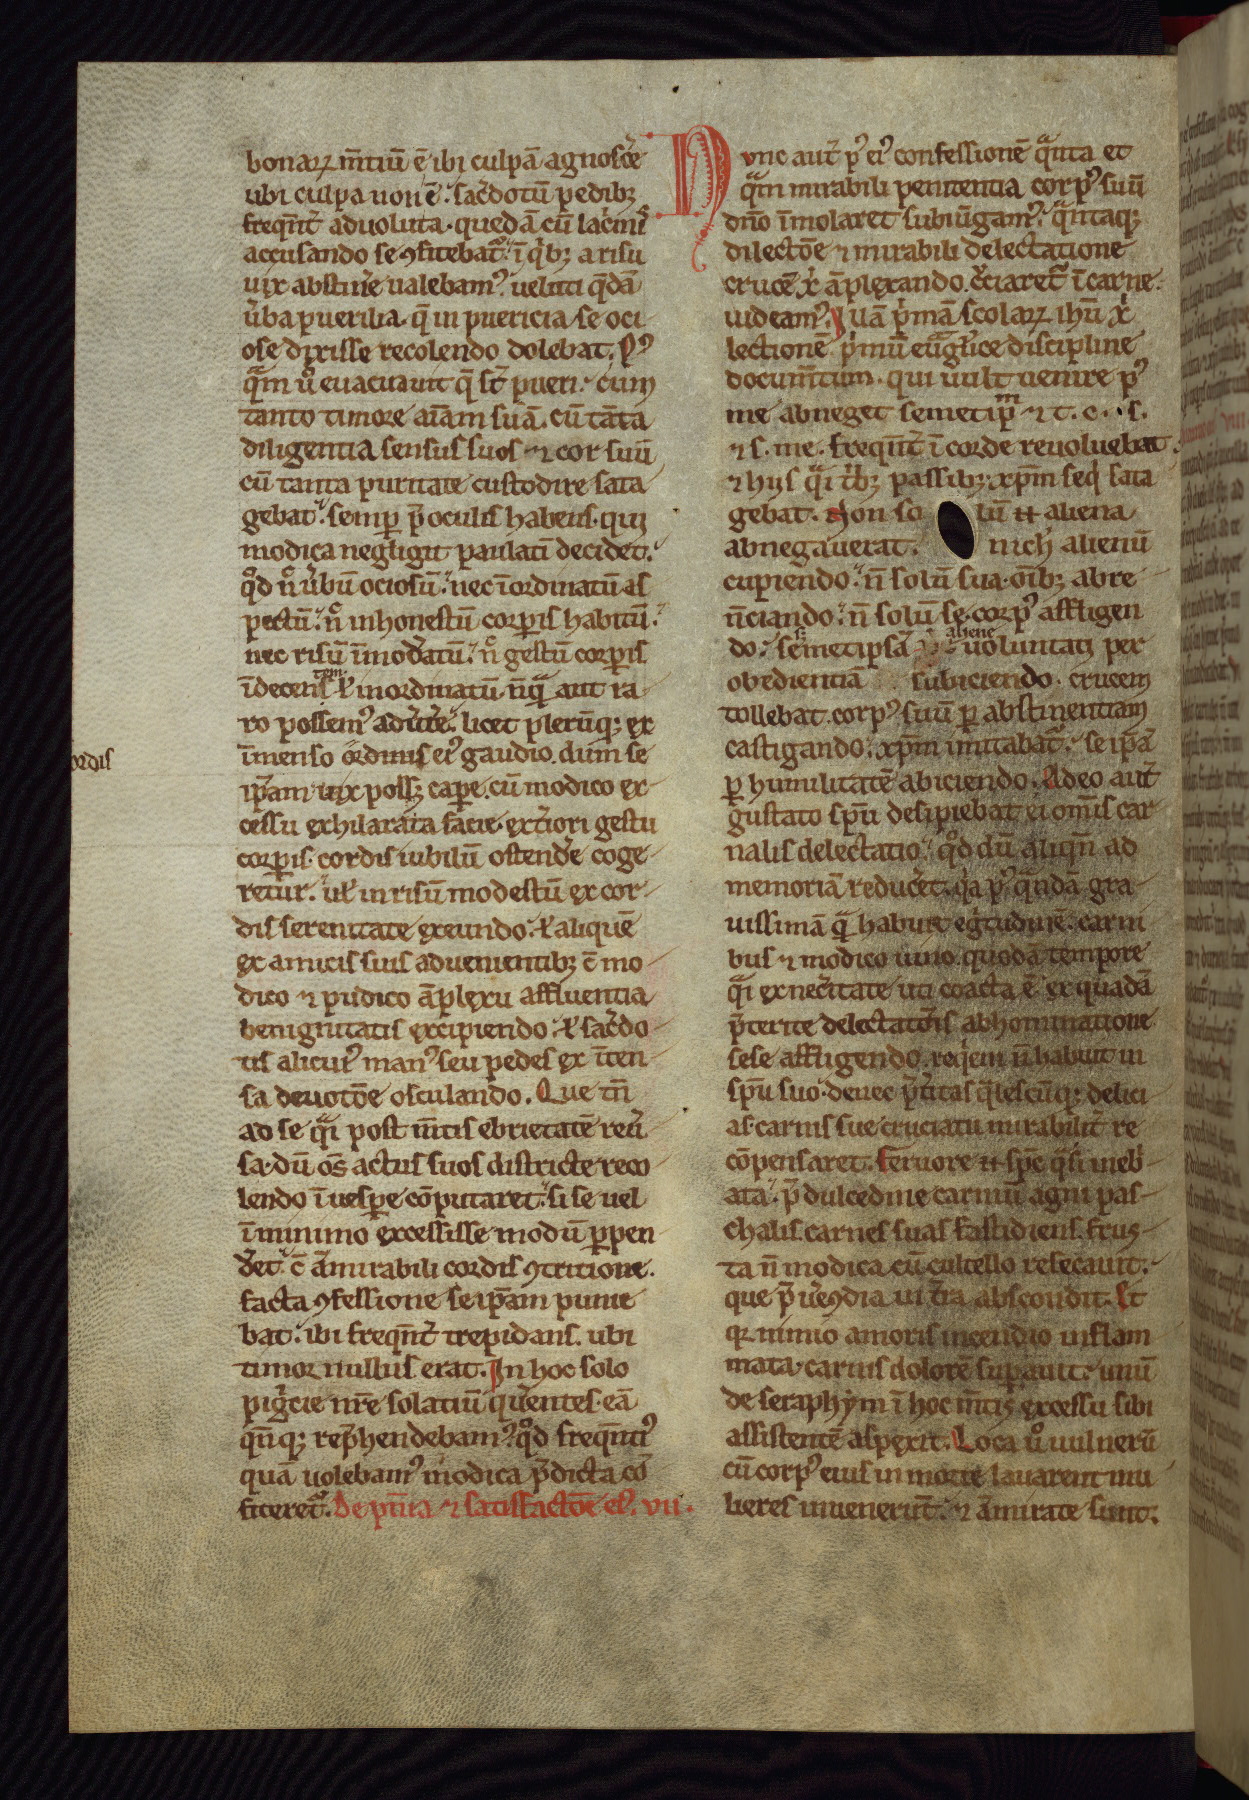 bonaꝝ m̄tiū ē ibi culpā agnosc̄e
ubi culpa non ē. sac̄dotū pedibꝫ
freqn̄t̄ aduoluta. quedā cū lac̄miˢ
accusando se ꝯfitebat᷑. ī qͥbꝫ a risu
uix abstin̄e ualebamꝰ. ueluti qͣdā
ūba puerilia. q̄ in puericia se oci
ose dixisse recolendo dolebat. Pꝰ
qͣm ūo euacuauit q̄ st̄ pueri. cum
tanto timore aīam suā. cū tāta
diligentia sensus suos ⁊ cor suū
cū tanta puritate custodire sata
gebat. semꝑ p̄ oculis habens. qui
modica negligit paulatī decidet.
qͦd nͦ ūbū ociosū. nec īordinatū as
pectū. nͦ inhonestū corꝑis habitū.
nec risū īmod̄atū. nͦ gestū corꝑis
īdecens ł inordinatū. nūqͣ aut ra
ro possemꝰ adūt̄e. licet plerūqꝫ ex
īmenso cordis eiꝰ gaudio. dum se
ip̄am uix possꝫ caꝑe. cū modico ex
cessu exhilarata facie. ext̄iori gestu
corꝑis. cordis iubilū ostend̄e coge
retur. uł in risū modestū ex cor
dis serenitate exeundo. ł aliquē
ex amicis suis aduenientibꝫ c̄ mo
dico ⁊ pudico āplexu affluentia
benignitatis excipiendo. ł sac̄do
tis alicuiꝰ manꝰ seu pedes ex īten
sa deuotōe osculando. Que tn̄
ad se qͣi post m̄tis ebrietatē reū
sa. dū oēs actus suos districte reco
lendo ī uesꝑe cōputaret. si se uel
ī minimo excessisse modū ꝑpen
d̄et. c̄ āmirabili cordis ꝯtritione.
facta ꝯfessione seip̄am punie
bat. ibi freqn̄t̄ trepidans. ubi
timor nullus erat. In hoc solo
pigͥcie nr̄e solatiū quērentes. eā
qn̄qꝫ rep̄hendebamꝰ. qͦd freqn̄tiꝰ
quā uolebamꝰ modica p̄dicta cō
ficeret᷑. De pn̄ia ⁊ satisfactōe eiꝰ. vii.
Nunc aut̄ pꝰ eiꝰ confessionē qͣnta et
qͣm mirabili penitentia corpꝰ suū
dn̄o īmolaret subiūgamꝰ. qͣntaqꝫ
dilectōe ⁊ mirabili delectatione
crucē xͥ āplexando. c̄ciaret᷑ ī carne.
uideamꝰ. Quā pͥmā scolaꝝ ihū xͥ
lectionē pͥmū euāgl̄ice discipline
documtum. qui uult uenire pꝰ
me abneget semetip̄m ⁊ t. c. s.
⁊ s. me. freqn̄t̄ ī corde reuoluebat.
⁊ hijs qͣi tͥbꝫ passibꝫ. xp̄m seqͥ sata
gebat. Non so lū n̄ aliena
abnegauerat. nich̄ alienū
cupiendo. n̄ solū sua. oīb; abre
n̄ciando. n̄ solū se. corpꝰ affligen
do. s; semetipsā aliene uoluntati per
obedientiā subiciendo. crucem
tollebat. corpꝰ suū ꝑ abstinentiam
castigando. xp̄m imitabat᷑. se ip̄ā
ꝑ humilitatē abiciendo. Adeo aut̄
gustato spū desipiebat ei omīs car
nalis delectatio. qͦd dū aliqn̄ ad
memoriā reduc̄et. qͥa pꝰ qͣndā gra
uissimā qͣ habuit egͥtudinē. carni
bus ⁊ modico uino. quodā tempore
qͣi ex nec̄itate uti coacta ē. ex quadā
p̄terite delectatōis abhominatione
sese affligendo. reqͥem n̄ habuit in
spū suo. donec p̄t̄itas qͣlescūqꝫ delici
as. carnis sue cruciatu mirabilit̄ re
cōpensaret. Feruore n̄ spc̄ qͣsi inebͥ
ata. p̄ dulcedine carniū agni pas
chalis. carnes suas fastidiens. frus
ta n̄ modica cū cultello resecauit.
que p̄ ūecūdia ī t̄ra abscondit. Et
qr. nimio amoris incendio inflam
mata. carnis dolorē suꝑauit. unū
de seraphym ī hoc m̄tis excessu sibi
assistentē aspexit. Loca ūo uulnerū
cū corpꝰ eius in morte lauarent mu
lieres inuenerūt. ⁊ āmirate sunt.
ordis